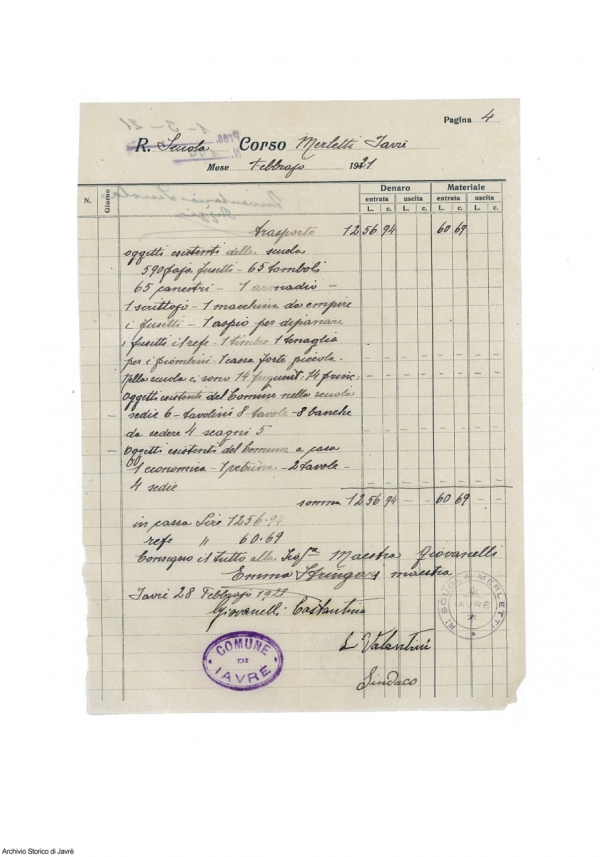 1-3-21
Pagina 4
R. Scuola Corso Merletti Javrè
Pres.
N.
Mese Febbrajo 1921
N. Giorno Denaro Materiale
entrata uscita entrata uscita
L. c. L. c. L. c. L. c.
trasporto 1256 94 60 69
oggetti esistenti della scuola
590 paja fusetti - 65 tomboli
65 canestri - 1 armadio -
1 scrittojo - 1 macchina da empire
i fusetti - 1 aspio per dipanare
i fusetti il refe - 1 timbro 1 tenaglia
per i piombini. 1 cassa forte piccola.
Nella scuola ci sono 14 frequent: 14 princ:
Oggetti esistenti del Comune nella scuola
sedie 6 - tavolini 8 tavole - 8 banche
da sedere 4 scagni 5
Oggetti esistenti del Comune a casa
1 economica - 1 - 2 tavole -
4 sedie
somma 1256 94 60 69
in cassa Lire 1256.94
refe " 60.69
Consegno il tutto alla Sig.ra Maestra Giovanelli
Emma Stringari maestra
Javrè 28 Febbrajo 1921
Giovanelli Costantina
R. SCUOLA MERLETTI
JAVRÈ
COMUNE
DI
JAVRE
L Valentini
Sindaco
Archivio Storico di Javrè